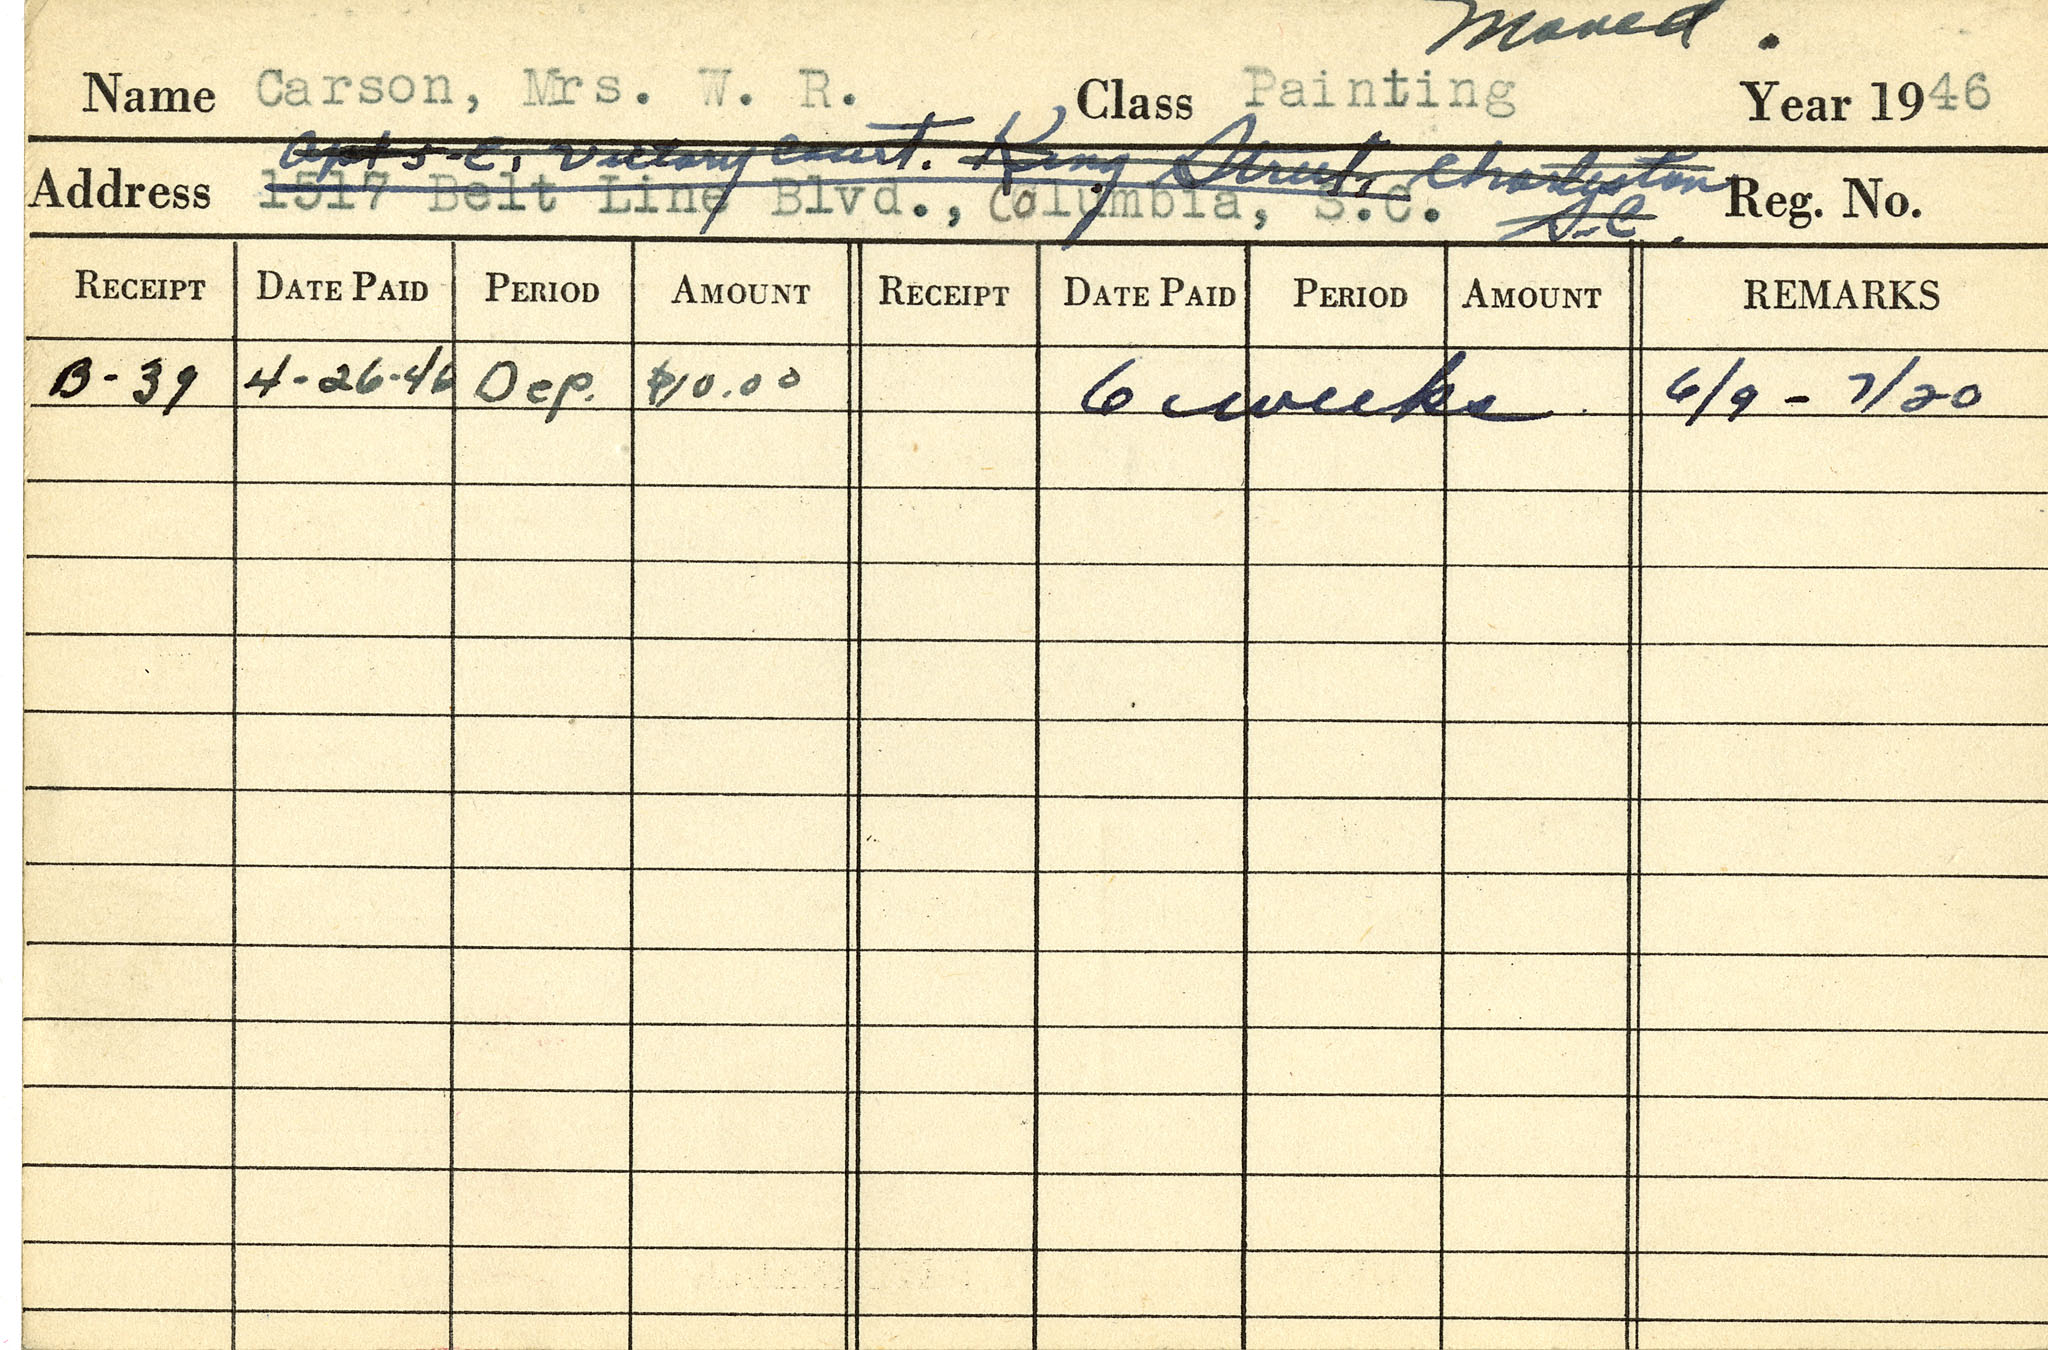 Moved.
Name Carson, Mrs. W. R. Class Painting Year 1946
Apt 5-C, Victory Court. King Street, Charleston S.C.
Address 1517 Belt Line Blvd., Columbia, S.C. Reg. No.
RECEIPT DATE PAID PERIOD AMOUNT RECEIPT DATE PAID PERIOD AMOUNT REMARKS
B-39 4-26-46 Dep. $10.00 6 weeks 6/9 - 7/20